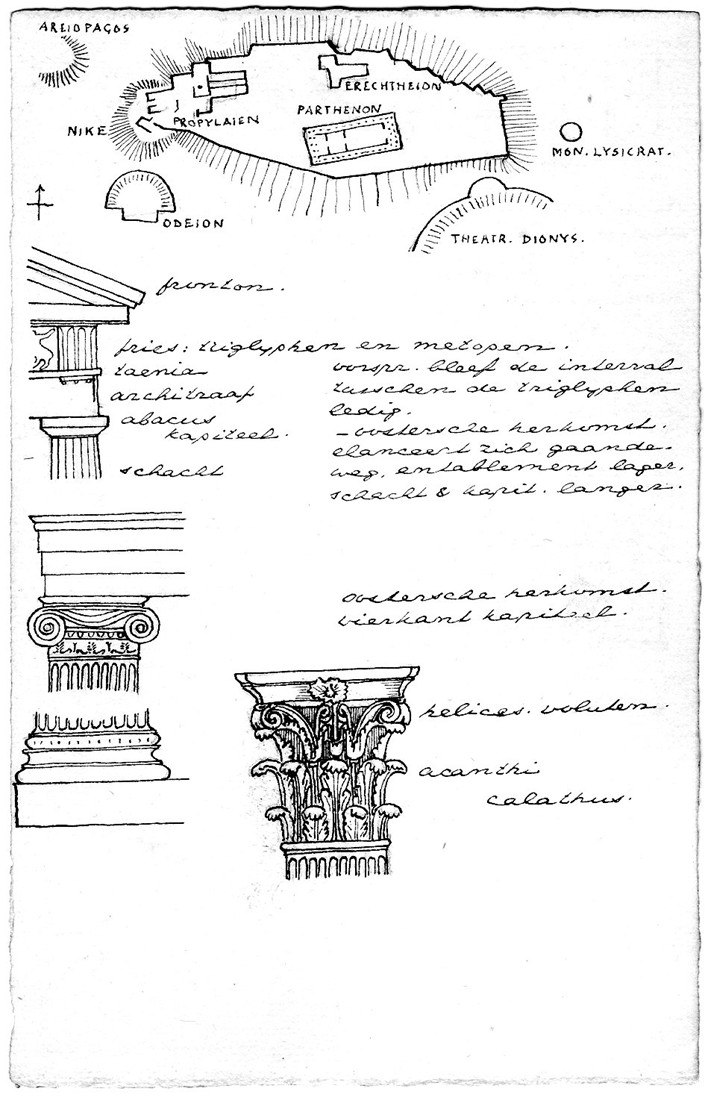 AREIOPAGOS
ERECHTHEION
PARTHENON
PROPYLAIEN
NIKE
MON. LYSICRAT.
ODEION
THEATR. DIONYS.
fronton.
fries: triglyphen en metopen.
taenia
architraaf
abacus
kapiteel.
schacht
oorspr. bleef de interval
tusschen de triglyphen
ledig.
– oostersche herkomst.
elanceert zich gaande-
weg, entablement lager,
schacht & kapit. langer.
oostersche herkomst.
vierkant kapiteel.
helices. voluten.
acanthi
calathus.